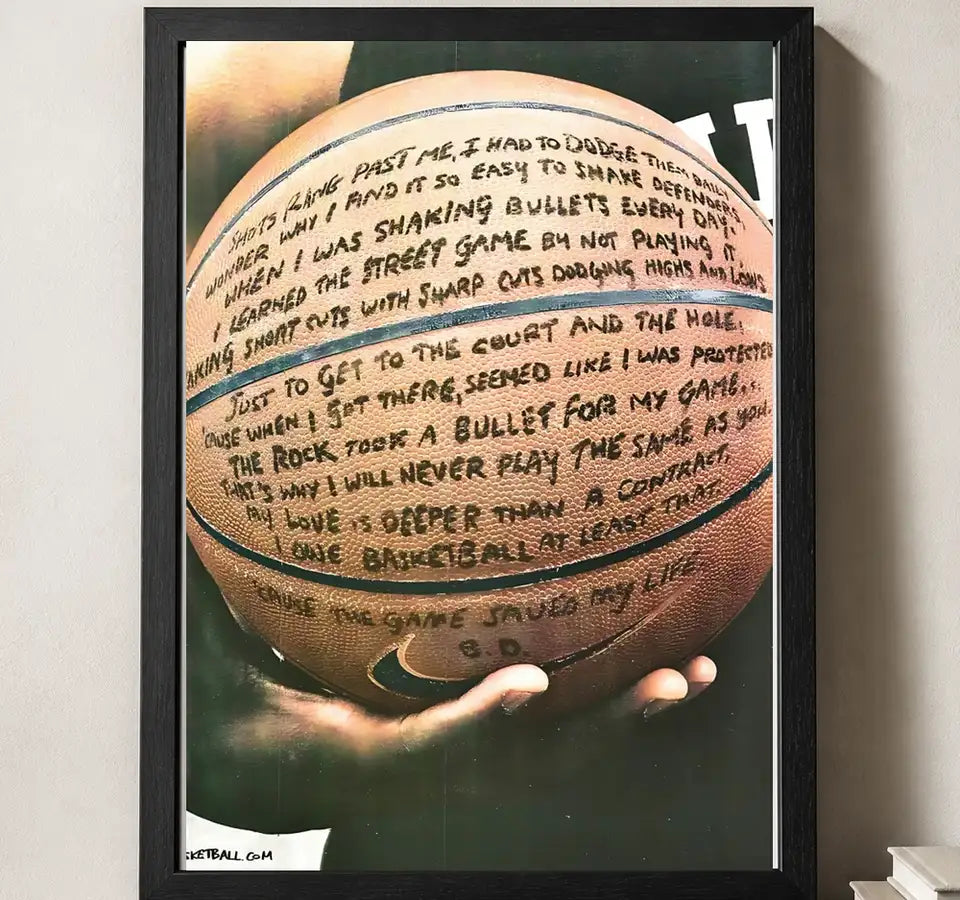 SHOTS RANG PAST ME, I HAD TO DODGE THEM DAILY
WONDER WHY I FIND IT SO EASY TO SHAKE DEFENDERS,
WHEN I WAS SHAKING BULLETS EVERY DAY.
I LEARNED THE STREET GAME BY NOT PLAYING IT,
AKING SHORT CUTS WITH SHARP CUTS DODGING HIGHS AND LOWS
JUST TO GET TO THE COURT AND THE HOLE.
'CAUSE WHEN I GOT THERE, SEEMED LIKE I WAS PROTECTED
THE ROCK TOOK A BULLET FOR MY GAME...
THAT'S WHY I WILL NEVER PLAY THE SAME AS YOU.
MY LOVE IS DEEPER THAN A CONTRACT.
I OWE BASKETBALL AT LEAST THAT.
'CAUSE THE GAME SAVED MY LIFE.
S.D.
SKETBALL.COM